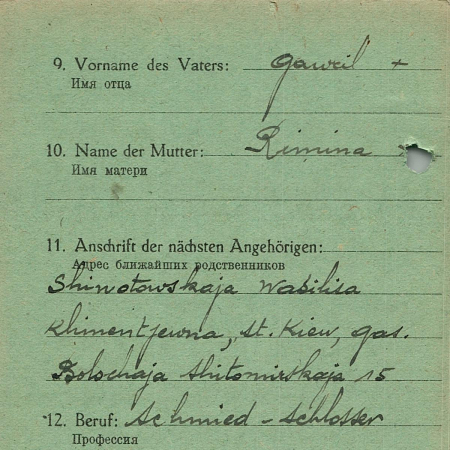 9. Vorname des Vaters: Gawril +
Имя отца
10. Name der Mutter: Rimina
Имя матери
11. Anschrift der nächsten Angehörigen:
Адрес ближайших родственников
Shiwotowskaja Wasilisa
Klimentjewna, st. Kiew, gas.
Bolschaja Shitomirskaja 15
12. Beruf: Schmied - Schlosser
Профессия